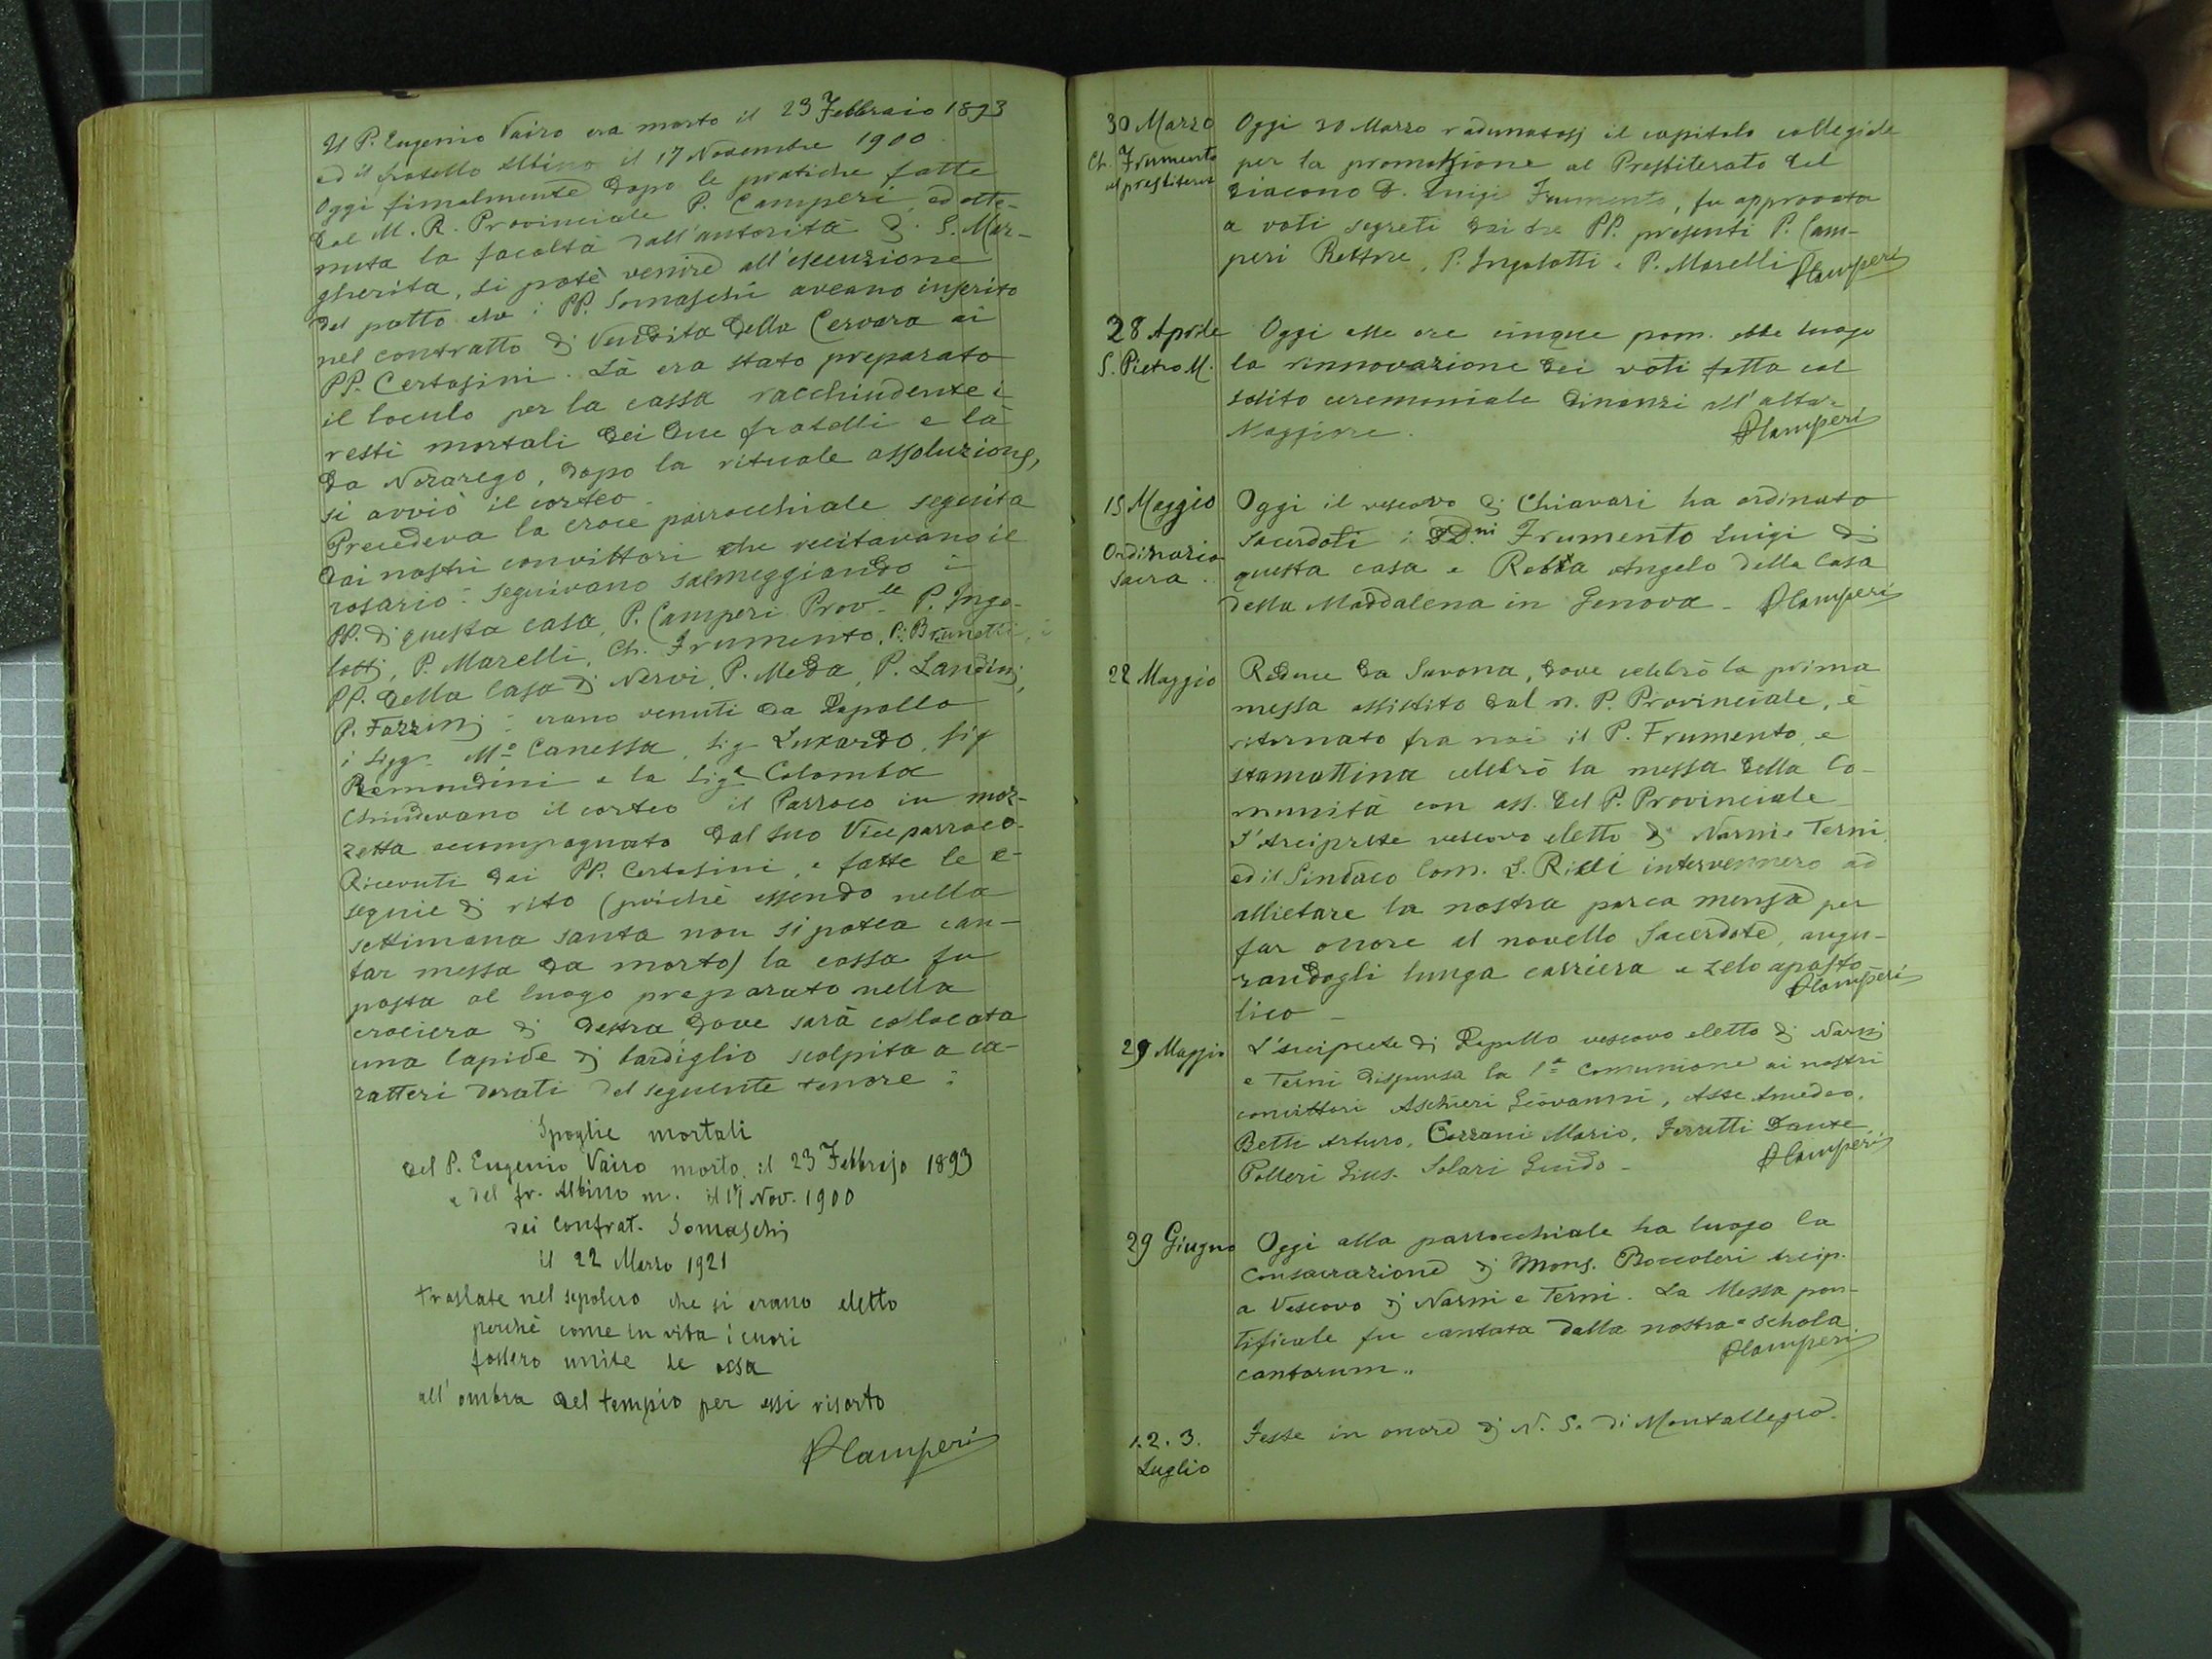 Il P. Eugenio Vairo era morto il 23 Febbraio 1893
ed il fratello Albino il 17 Novembre 1900.
Oggi finalmente dopo le pratiche fatte
dal M. R. Provinciale P. Camperi, ed otte-
nuta la facoltà dall'autorità di S. Mar-
gherita, si potè venire all'esecuzione
del patto che i PP. Somaschi aveano inserito
nel contratto di Vendita della Cervara ai
PP. Certosini. Là era stato preparato
il loculo per la cassa racchiudente i
resti mortali dei due fratelli e là
da Nozarego, dopo la rituale assoluzione,
si avviò il corteo.
Precedeva la croce parrocchiale seguita
dai nostri convittori che recitavano il
rosario: seguivano salmeggiando i
PP. di questa casa, P. Camperi Prov.le P. Ingo-
lotti, P. Marelli, Ch. Frumento, P. Brunetti, i
PP. della Casa di Nervi, P. Meda, P. Landini,
P. Fazzini: erano venuti da Rapallo
i Sigg. M.o Canessa, Sig. Luxardo, Sig
Remondini e la Sig.a Colomba
Chiudevano il corteo il Parroco in moz-
zetta accompagnato dal suo Viceparroco.
Ricevuti dai PP. Certosini, e fatte le e-
sequie di rito (poichè essendo nella
settimana santa non si potea can-
tar messa da morto) la cassa fu
posta al luogo preparato nella
crociera di destra dove sarà collocata
una lapide di bardiglio scolpita a ca-
ratteri dorati del seguente tenore:
Spoglie mortali
del P. Eugenio Vairo morto il 23 Febbrajo 1893
e del fr. Albino m. il 17 Nov. 1900
dei Confrat. Somaschi
il 22 Marzo 1921
traslate nel sepolcro che si erano eletto
perchè come in vita i cuori
fossero unite le ossa
all'ombra del tempio per essi risorto
PCamperi
30 Marzo
Ch. Frumento
al presbiterat
Oggi 30 Marzo radunatosi il capitolo collegiale
per la promozione al Presbiterato del
diacono D. Luigi Frumento, fu approvato
a voti segreti dai tre PP. presenti P. Cam-
peri Rettore, P. Ingolotti e P. Marelli PCamperi
28 Aprile
S. Pietro M.
Oggi alle ore cinque pom. ebbe luogo
la rinnovazione dei voti fatta col
solito ceremoniale dinanzi all'altar
Maggiore.
PCamperi
15 Maggio
Ordinazio
sacra.
Oggi il vescovo di Chiavari ha ordinato
Sacerdoti i DD.ni Frumento Luigi di
questa casa e Rebba Angelo della Casa
della Maddalena in Genova - PCamperi
22 Maggio
Reduce da Savona, dove celebrò la prima
messa assistito dal n. P. Provinciale, è
ritornato fra noi il P. Frumento, e
stamattina celebrò la messa della Co-
munità con ass. del P. Provinciale
L'Arciprete vescovo eletto di Narni e Terni,
ed il Sindaco Com. L. Ricci intervennero ad
allietare la nostra parca mensa per
far onore al novello Sacerdote, augu-
randogli lunga carriera e zelo aposto-
lico -
PCamperi
29 Maggio
L'arciprete di Rapallo vescovo eletto di Narni
e Terni dispensa la 1.a Comunione ai nostri
convittori Aschieri Giovanni, Asse Amedeo,
Betti Arturo, Corrani Mario, Ferretti Dante
Polleri Gius. Solari Guido -
PCamperi
29 Giugno
Oggi alla parrocchiale ha luogo la
Consacrazione di Mons. Boccoleri arcip.
a Vescovo di Narni e Terni. La Messa pon-
tificale fu cantata dalla nostra "schola
cantorum"
PCamperi
1.2.3.
Luglio
Feste in onore di N. S. di Montallegro.